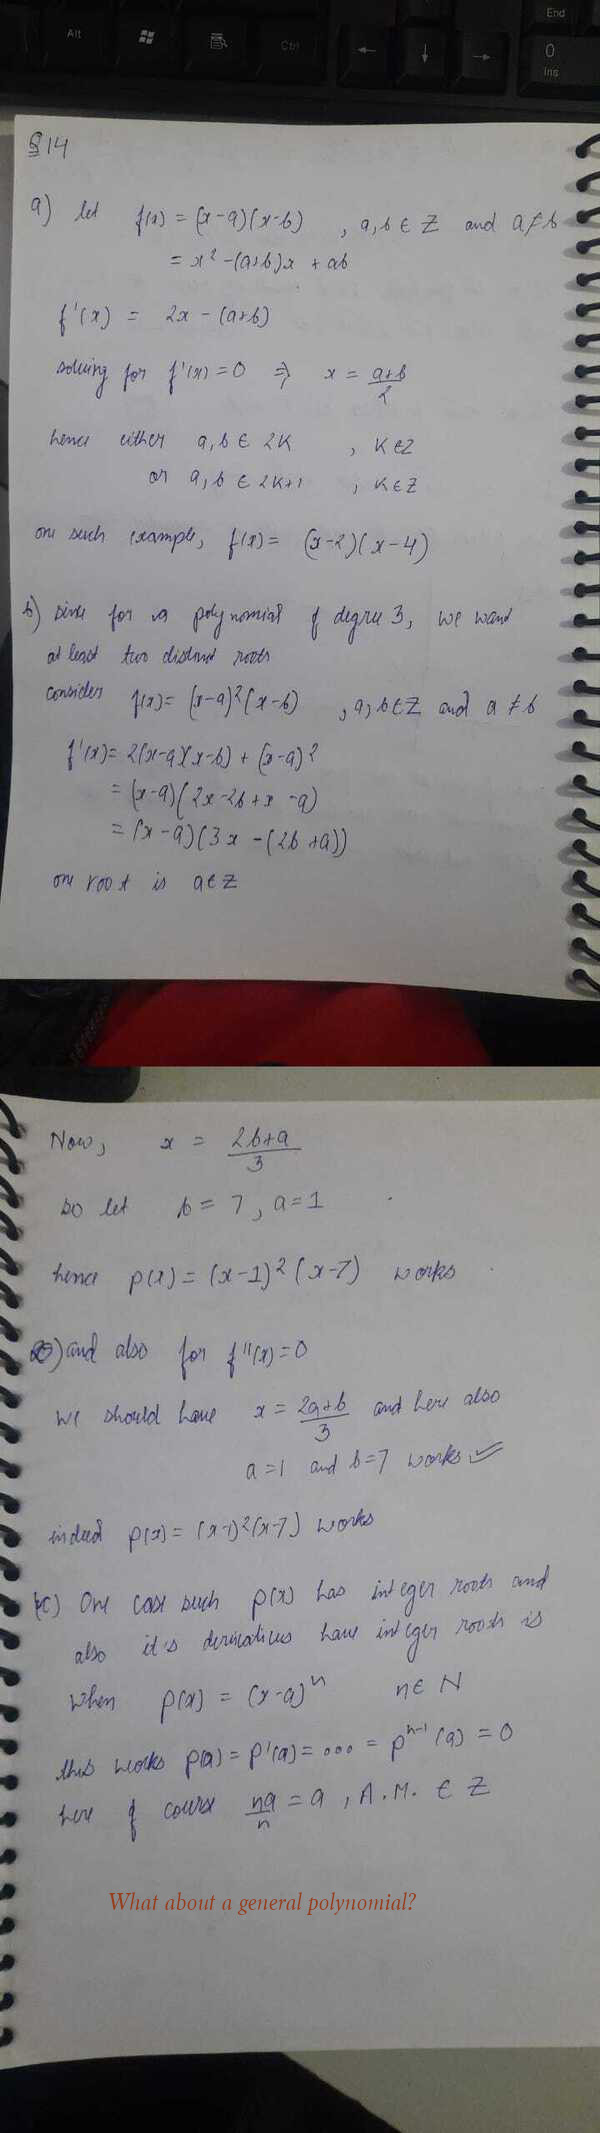 Alt
Ctrl
End
0
Ins
Q 14
a) let f(x) = (x-a)(x-b) , a,b ∈ Z and a≠b
= x² -(a+b)x + ab
f'(x) = 2x - (a+b)
solving for f'(x)=0 ⇒ x = (a+b)/2
hence either a,b ∈ 2K , K∈Z
or a,b ∈ 2K+1 , K∈Z
one such example, f(x) = (x-2)(x-4)
b) since for a polynomial of degree 3, we want
at least two distinct roots
consider f(x) = (x-a)²(x-b) , a,b∈Z and a≠b
f'(x) = 2(x-a)(x-b) + (x-a)²
= (x-a)(2x-2b+x-a)
= (x-a)(3x-(2b+a))
one root is a∈Z
Now, x = (2b+a)/3
so let b = 7, a=1
hence p(x) = (x-1)²(x-7) works.
and also for f''(x)=0
we should have x = (2a+b)/3 and here also
a=1 and b=7 works
indeed p(x) = (x-1)²(x-7) works
(c) One case such p(x) has integer roots and
also it's derivatives have integer roots is
when p(x) = (x-a)ⁿ n∈N
this works p(a) = p'(a) = ... = pⁿ⁻¹(a) = 0
here of course na/n = a, A.M. ∈ Z
What about a general polynomial?